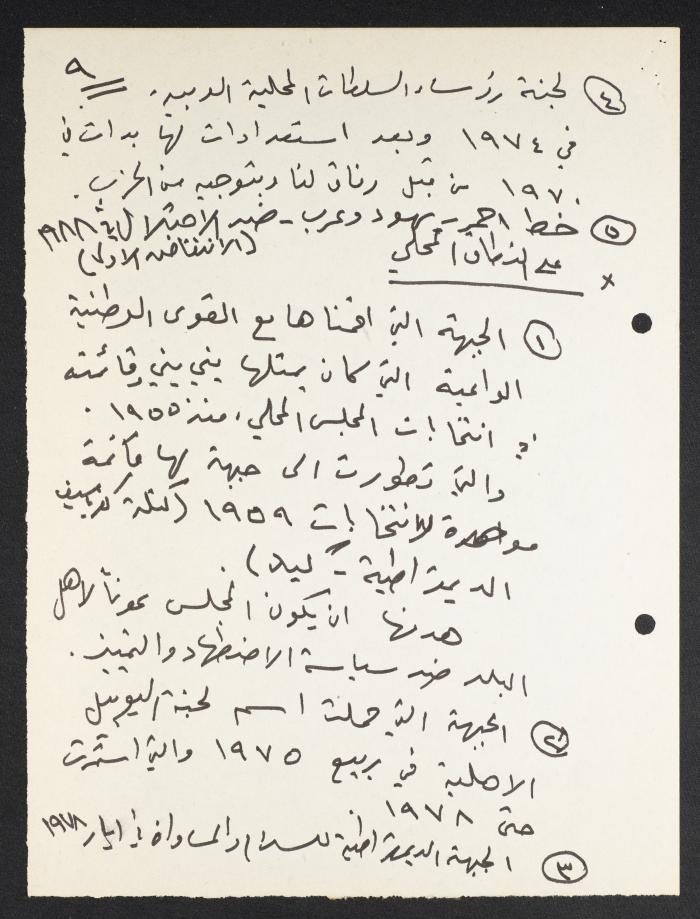 ٩
④ لجنة رؤساء السلطات المحلية العربية.
في ١٩٧٤ وبعد استعدادات لها بدأت في
١٩٧٠ من قبل رفاق لنا وبتوجيه من الحزب.
⑤ خط احمر - يهود وعرب - ضد الاحتلال في ١٩٨٨
(الانتفاضة الاولى)
x على النطاق المحلي
① الجبهة التي اقمناها مع القوى الوطنية
الواعية التي كان يمثلها يني يني وقائمته
في انتخابات المجلس المحلي، منذ ١٩٥٥.
والتي تطورت الى جبهة لها قائمة
موحدة لانتخابات ١٩٥٩ (كتلة كفرياسيف
الديمقراطية -).
هدفها ان يكون المجلس عوناً لاهل
البلد ضد سياسة الاضطهاد والتمييز.
② الجبهة التي حملت اسم لجنة اليوبيل
الاهلية في ربيع ١٩٧٥ والتي استمرت
حتى ١٩٧٨
③ الجبهة الديمقراطية للسلام والمساواة في ايار ١٩٧٨